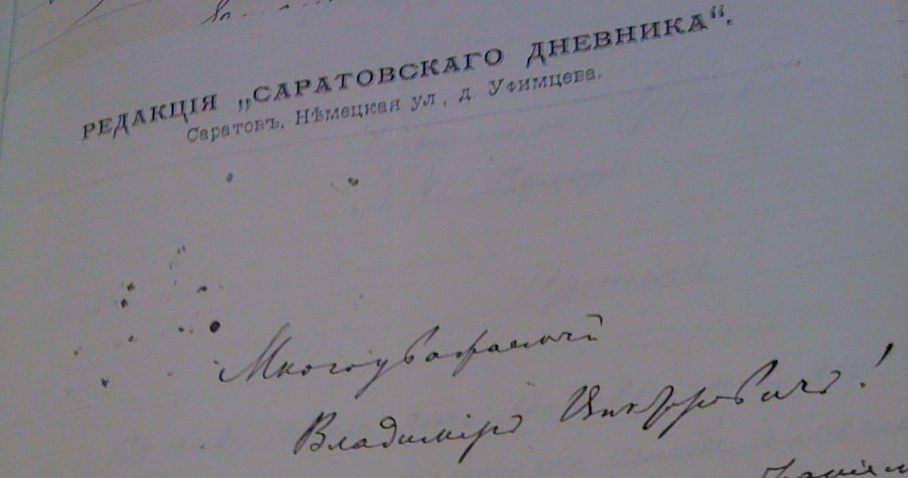 РЕДАКЦІЯ „САРАТОВСКАГО ДНЕВНИКА“.
Саратовъ, Нѣмецкая ул, д. Уфимцева.
Многоуважаемый
Владиміръ Викторовичъ!